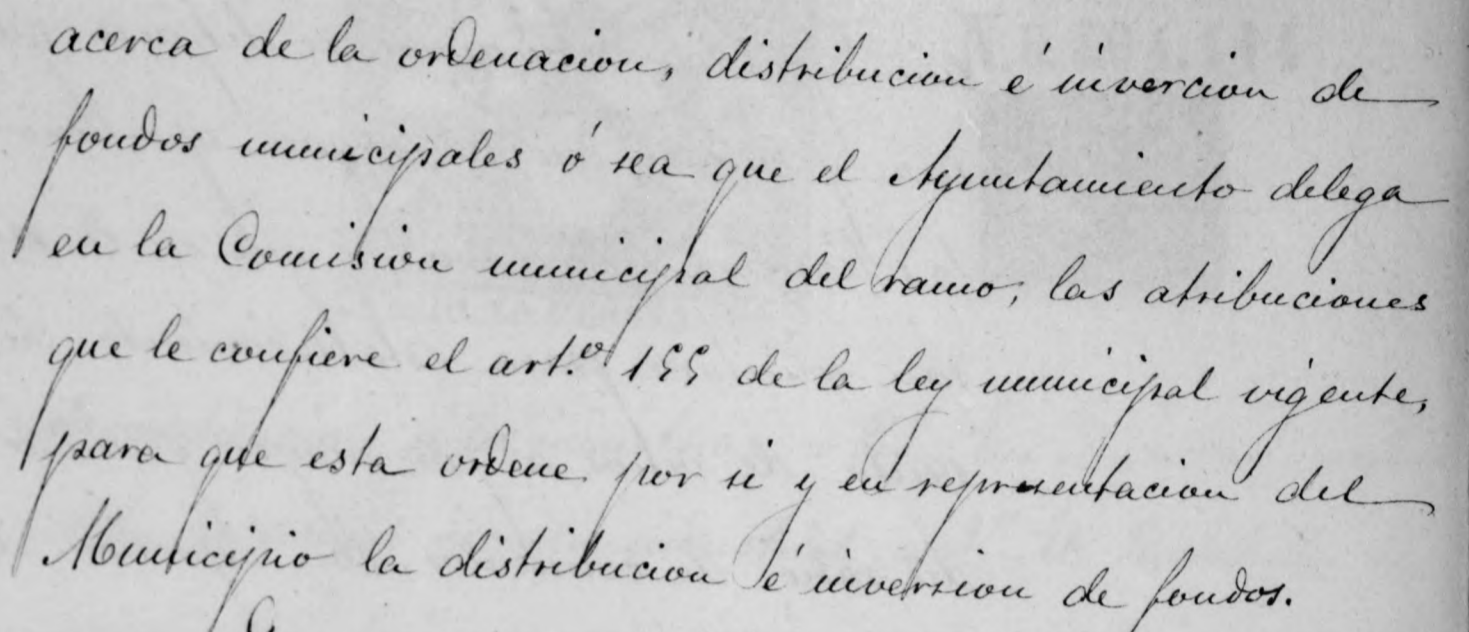 acerca de la ordenacion, distribucion é invercion de
fondos municipales ó sea que el Ayuntamiento delega
en la Comision municipal del ramo, las atribuciones
que le confiere el art.º 155 de la ley municipal vigente,
para que esta ordene por si y en representacion del
Municipio la distribucion é inversion de fondos.